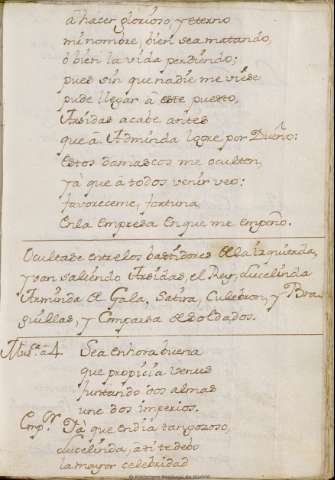 à hacer glorioso, y eterno
mi nombre, bien sea matando,
ò bien la vida perdiendo;
pues sin que nadie me viese
pude llegar à este puesto,
Arsidas acabe antes
que à Arminda logre por Dueño:
Estos damascos me oculten,
yà que à todos venir veo:
favoreceme, fortuna
En la Empresa En que me empeño.
Ocultase entre los bastidores de la izquierda,
y van saliendo Arsidas, el Rey, Lucelinda
Arminda de Gala, Satira, Culebron, y Bra-
guillas, y Comparsa de Soldados.
Mus.ª à 4. Sea enhora buena
que propicia venus
Juntando dos almas
une dos imperios.
Emp.r Yà que en dia tan gozoso,
Lucelinda, à ti te debo
la mayor celebridad